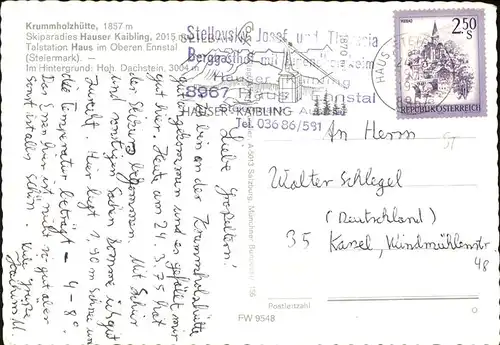 Krummholzhütte, 1857 m
Skiparadies Hauser Kaibling, 2015 m
Talstation Haus im Oberen Ennstal
(Steiermark).
Im Hintergrund: Hoh. Dachstein, 3004 m
Stellovsky Josef und Theresia
Berggasthof mit Jugendheim
8967 Haus Ennstal
HAUSER KAIBLING
Tel. 03686/591
1870 m
2.50 S
REPUBLIK ÖSTERREICH
Liebe Großeltern!
Ich bin an der Krummholzhütte
angekommen und es gefällt mir
gut hier. Heute am 24.3.75 hat
der Skikurs begonnen. Mit Skier
und sonstigen Sachen komme ich gut
zurecht. Hier liegt 1,90 m Schnee und
die Temperatur beträgt - 4 - 8°.
Das Essen hier ist nicht so gut aber
sonst ist alles schön. Viele Grüße
An Herrn
Walter Schlegel
(Deutschland)
35 Kassel, Windmühlenstr
48
Postleitzahl
FW 9548